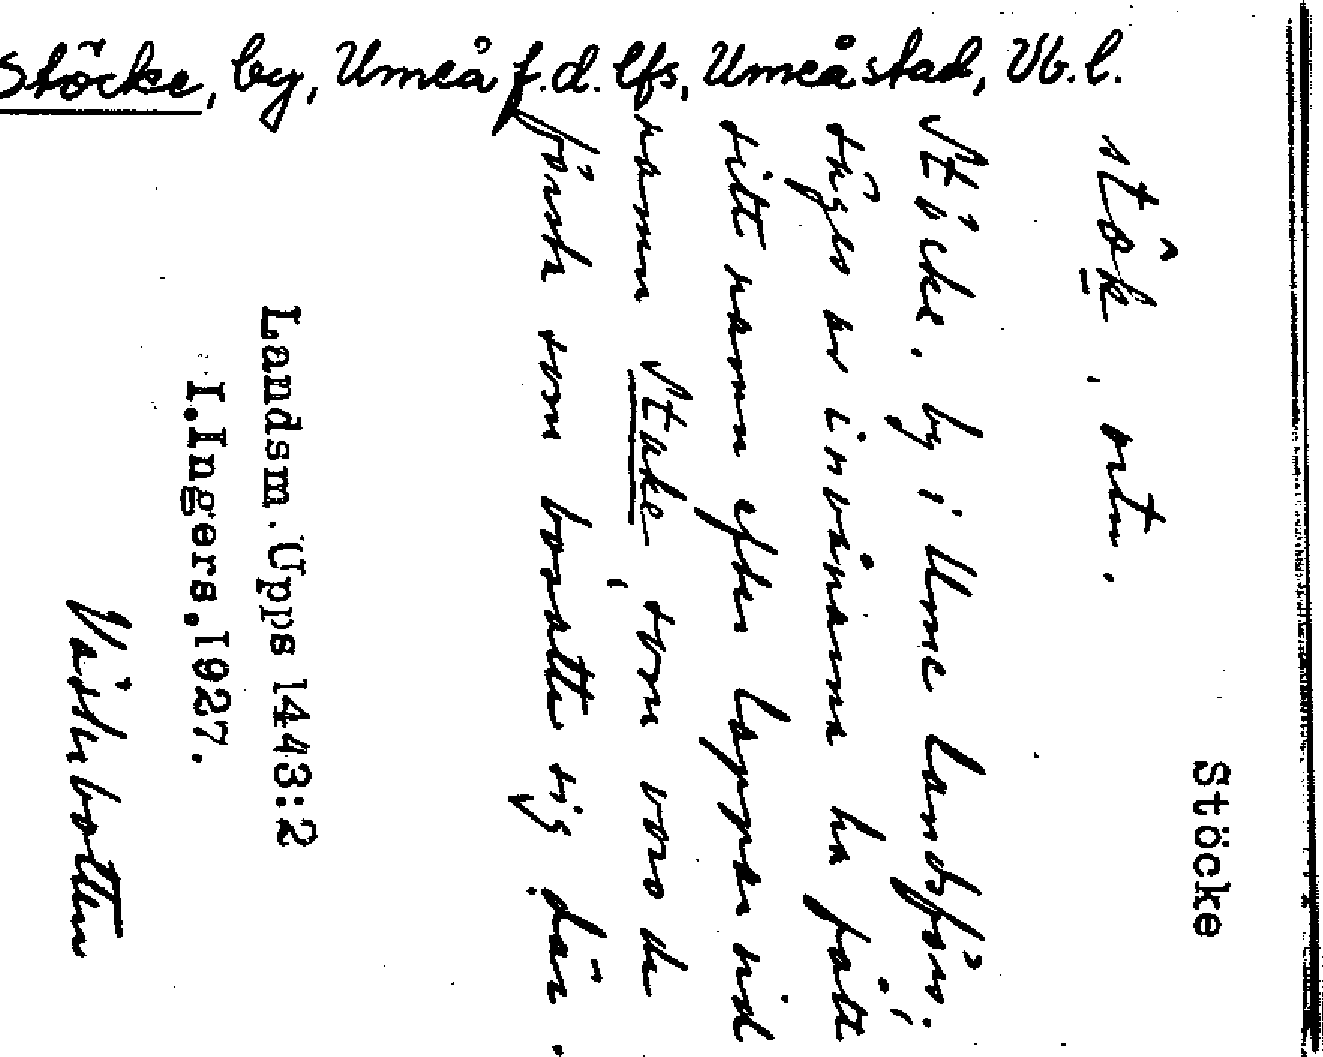 Stöcke, by, Umeå f.d. lfs, Umeå stad, Vb.l.
Stöcke
Stöcke, by i Ume landsförs.,
säges av invånarna ha fått
sitt namn efter lappar vid
namn Stake, som voro de
första som bosatte sig där.
Landsm. Upps 1443:2
I.Ingers, 1927.
Västerbotten